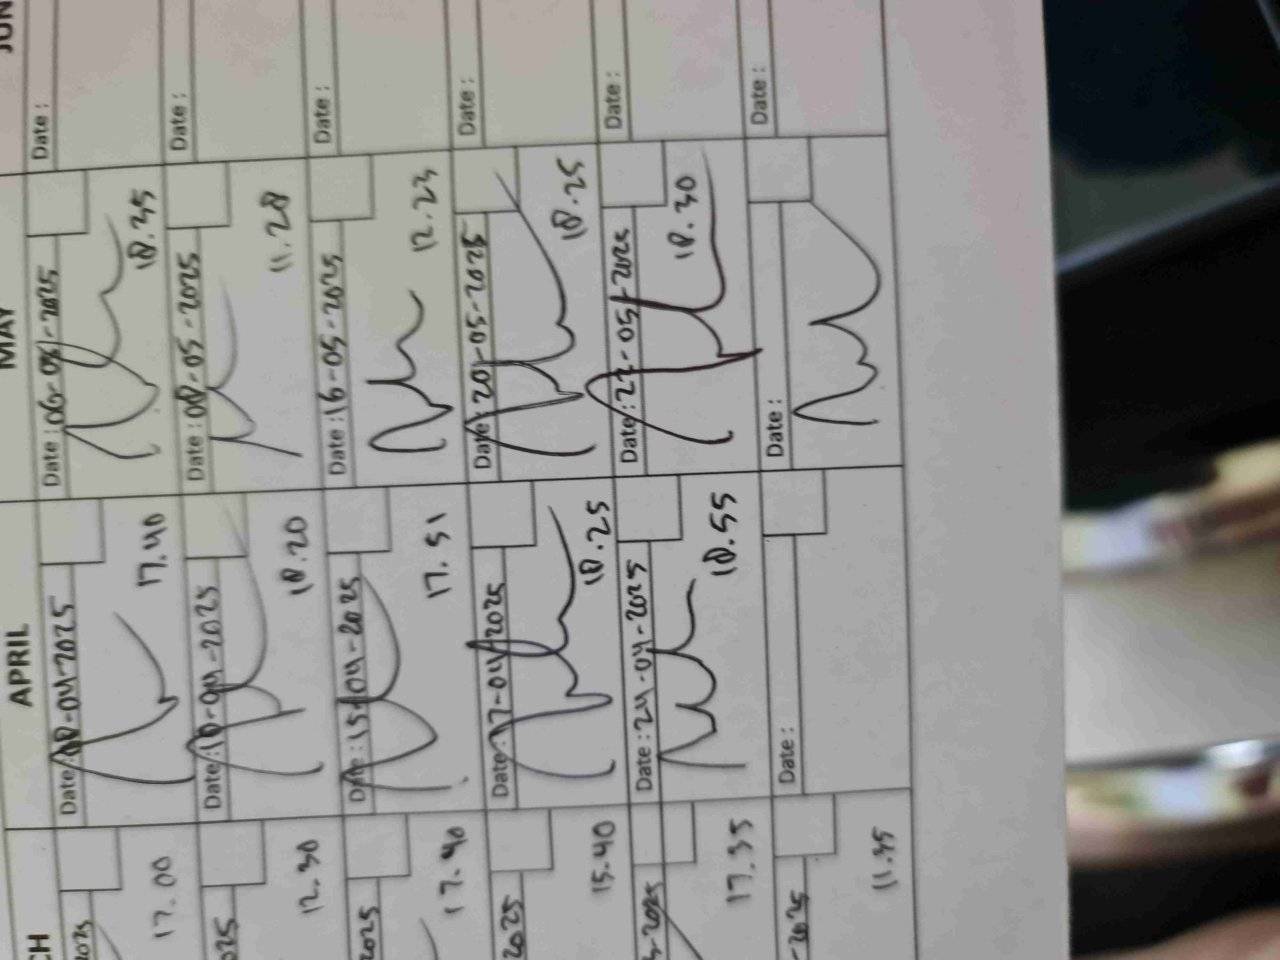 CH APRIL MAY JUN
2025 Date: 08-04-2025 Date: 06-05-2025 Date:
17.00 17.40 18.35
025 Date: 10-04-2025 Date: 08-05-2025 Date:
12.30 18.20 11.28
2025 Date: 15-04-2025 Date: 16-05-2025 Date:
17.40 17.51 12.23
2025 Date: 17-04-2025 Date: 20-05-2025 Date:
15.40 18.25 18.25
-2025 Date: 24-04-2025 Date: 22-05-2025 Date:
17.35 18.55 18.30
-2025 Date: Date: Date:
11.35